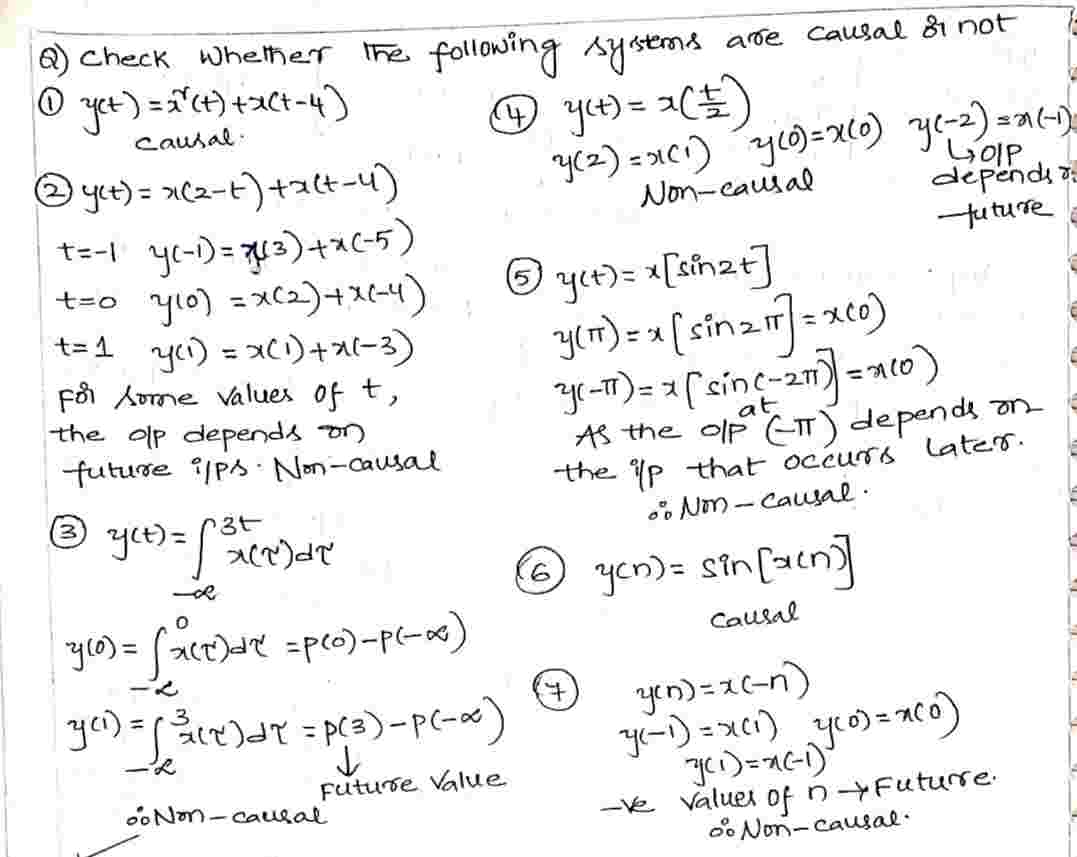 Q) Check whether the following systems are causal or not
① y(t) = x²(t) + x(t-4)
causal.
② y(t) = x(2-t) + x(t-4)
t=-1 y(-1) = x(3) + x(-5)
t=0 y(0) = x(2) + x(-4)
t=1 y(1) = x(1) + x(-3)
For some values of t,
the o/p depends on
future i/ps. Non-causal
③ y(t) = ∫_{-∞}^{3t} x(τ)dτ
y(0) = ∫_{-∞}^{0} x(τ)dτ = p(0) - p(-∞)
y(1) = ∫_{-∞}^{3} x(τ)dτ = p(3) - p(-∞)
↓
Future Value
∴ Non-causal
④ y(t) = x(t/2)
y(2) = x(1) y(0) = x(0) y(-2) = x(-1)
Non-causal
↳ O/P
depends
future
⑤ y(t) = x[sin2t]
y(π) = x[sin2π] = x(0)
y(-π) = x[sin(-2π)] = x(0)
As the o/p at (-π) depends on
the i/p that occurs later.
∴ Non-causal.
⑥ y(n) = sin[x(n)]
causal
⑦ y(n) = x(-n)
y(-1) = x(1) y(0) = x(0)
y(1) = x(-1)
-ve values of n → Future.
∴ Non-causal.